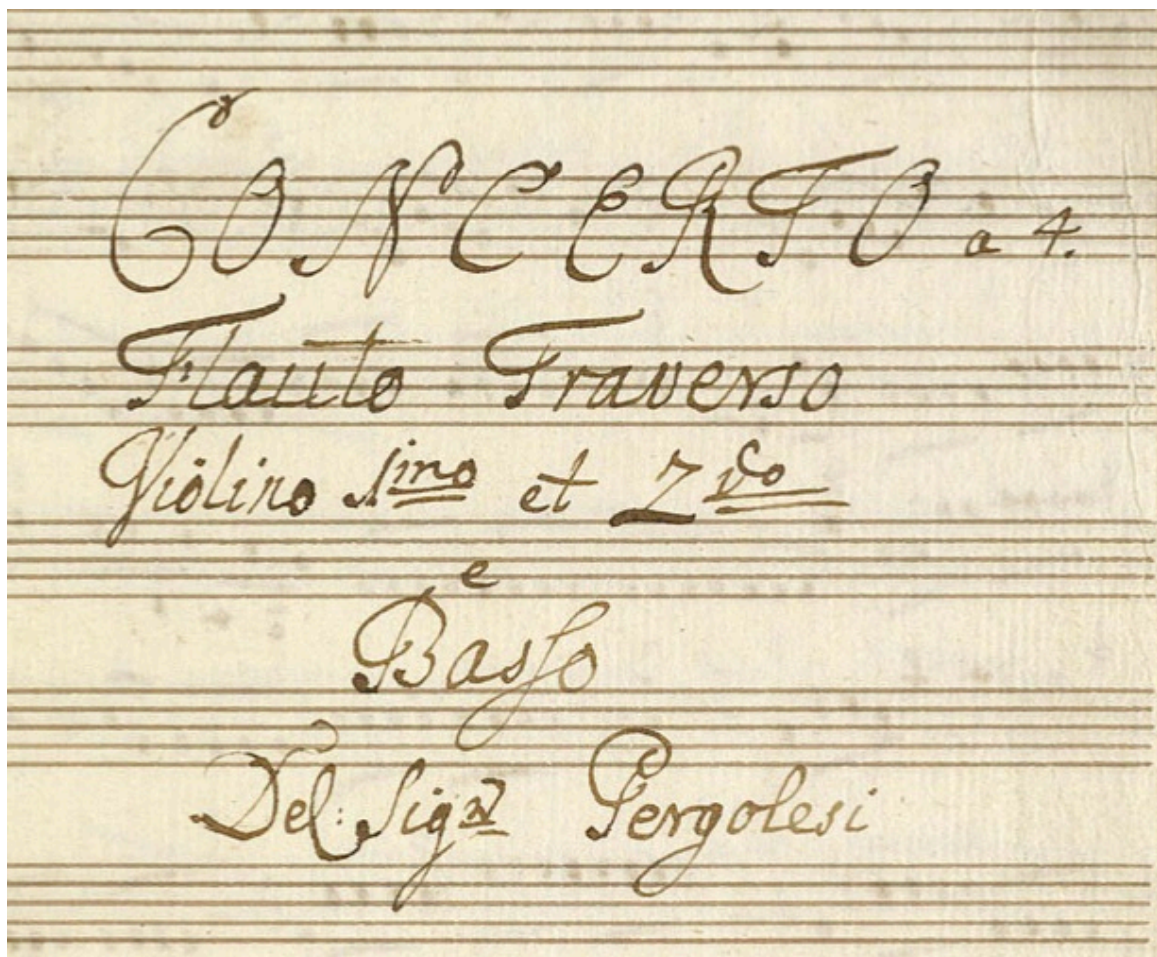 CONCERTO a 4.
Flauto Traverso
Violino 1mo et 2do
e
Basso
Del: Sigr Pergolesi